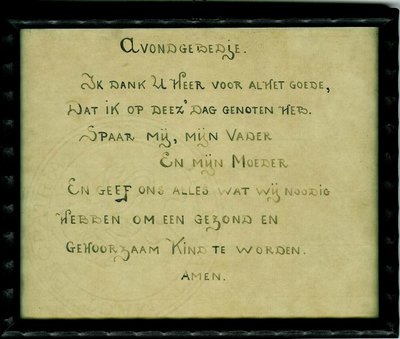 Avondgebedje.
Ik dank U Heer voor al het goede,
Dat ik op deez' dag genoten heb.
Spaar mij, mijn Vader
En mijn Moeder
En geef ons alles wat wij noodig
hebben om een gezond en
gehoorzaam Kind te worden.
Amen.